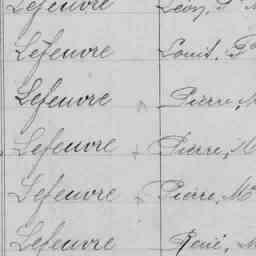 Lefeuvre Léon, P
Lefeuvre Louis, P
Lefeuvre Pierre, M
Lefeuvre Pierre, M
Lefeuvre Pierre, M
Lefeuvre René, M